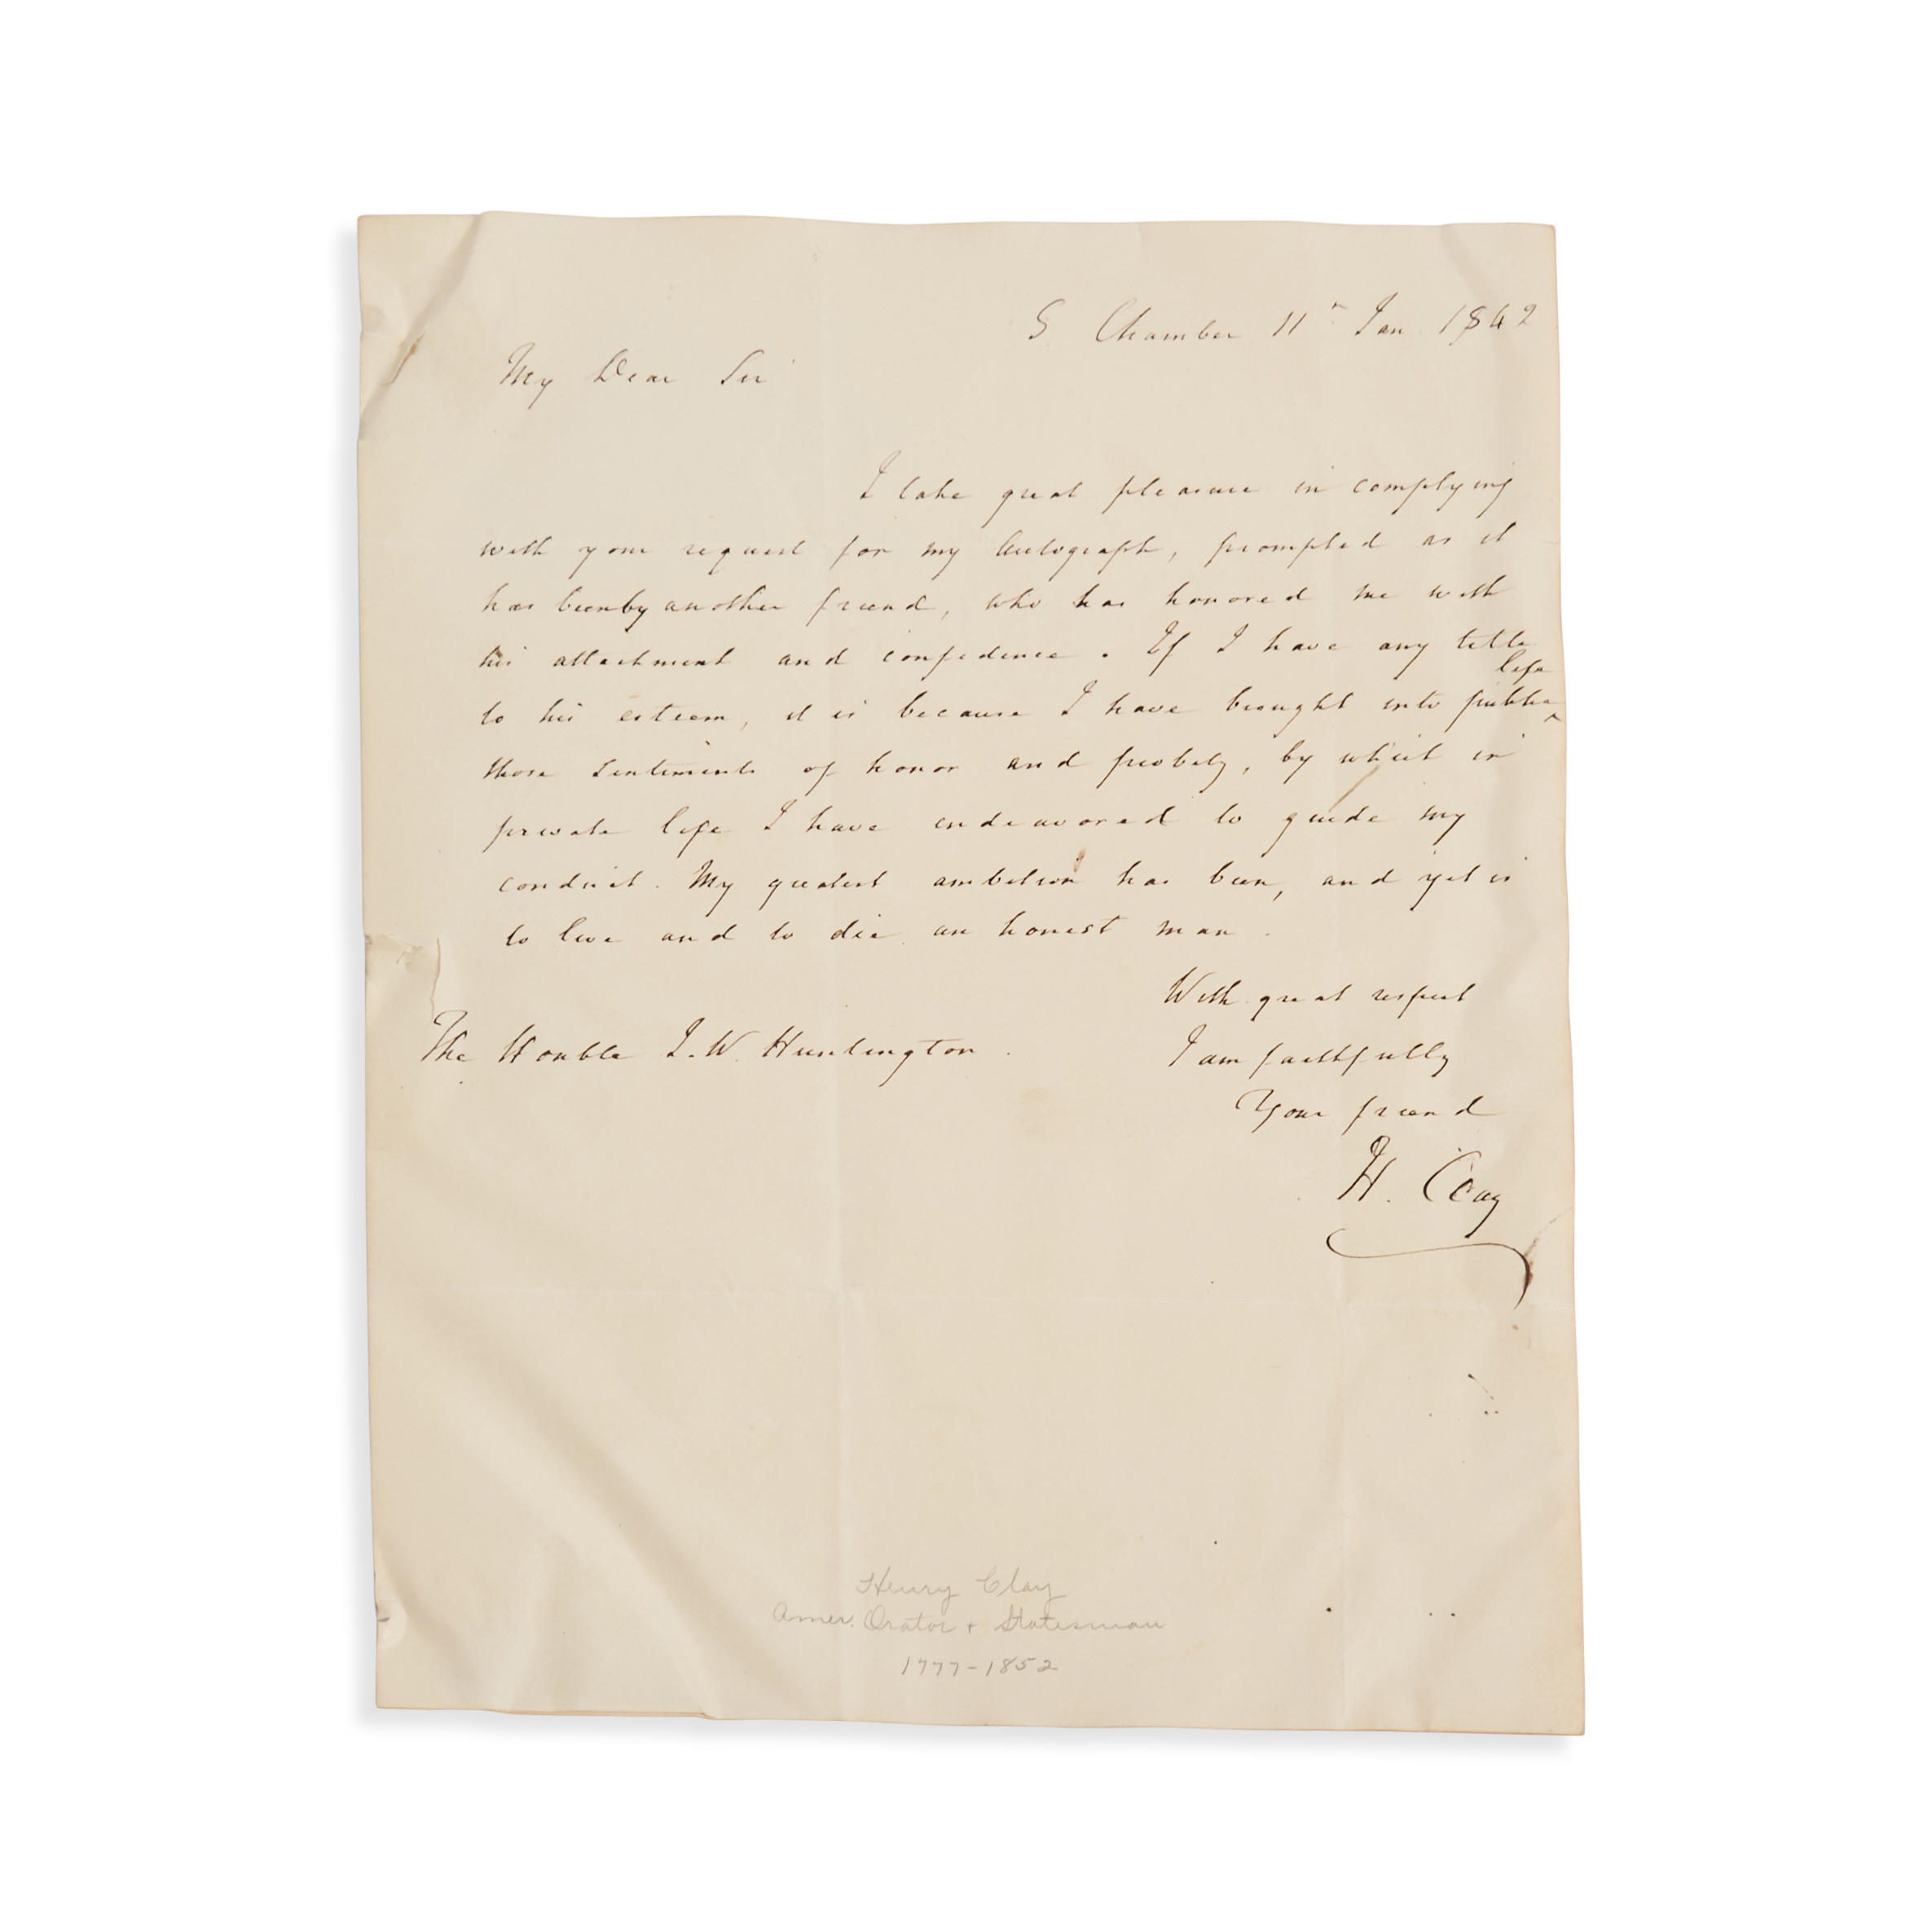 S. Chamber 11th Jan 1842
My Dear Sir
I take great pleasure in complying
with your request for my Autograph, prompted as it
has been by another friend, who has honored me with
his attachment and confidence. If I have any title
to his esteem, it is because I have brought into public ^ life
those sentiments of honor and probity, by which in
private life I have endeavored to guide my
conduct. My greatest ambition has been, and yet is
to live and to die an honest man.
With great respect
The Honble J. W. Huntington.
I am faithfully
Your friend
H. Clay
Henry Clay
Amer. Orator + Statesman
1777-1852